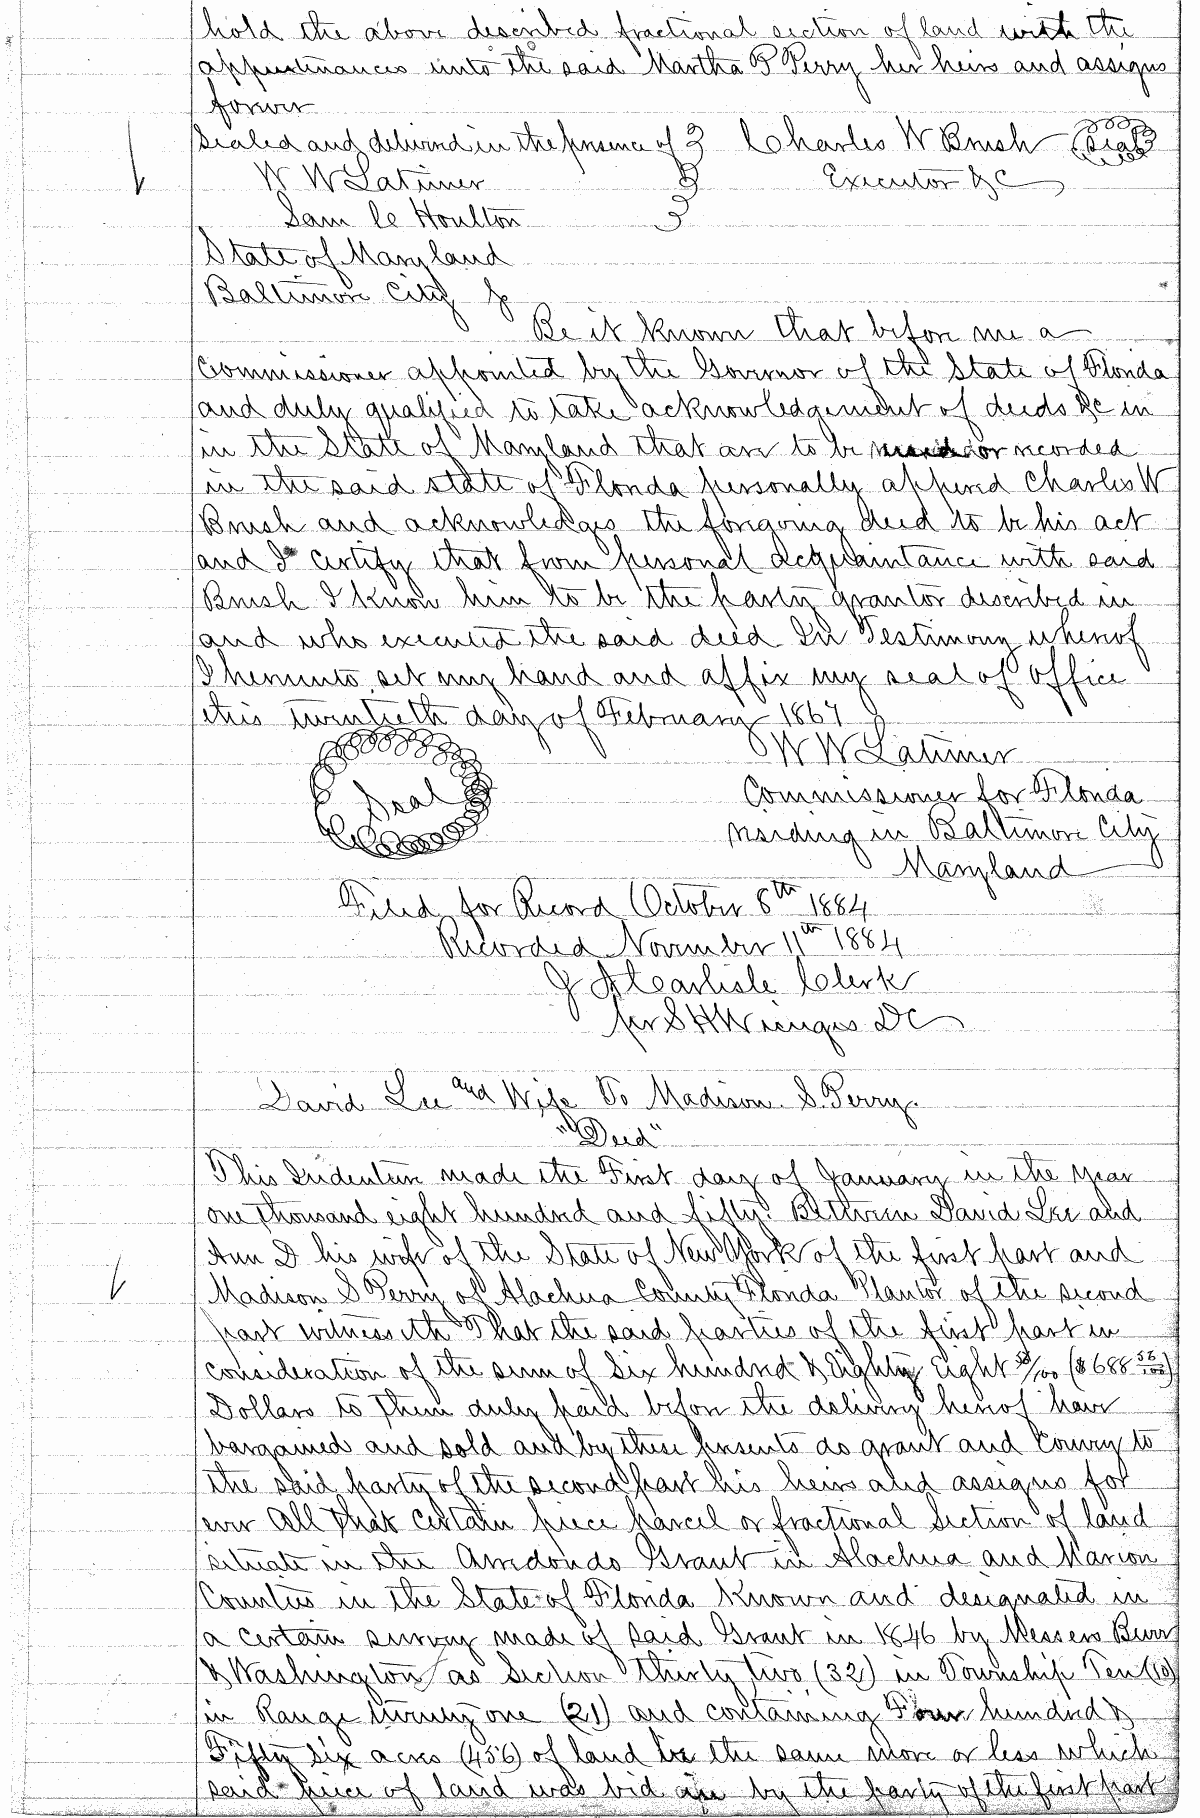 hold the above described fractional section of land with the
appurtinances unto the said Martha P Perry her heirs and assigns
forever
Sealed and delivered in the presence of } Charles W Brush (Seal)
W W Latimer } Executor &c
Sam le Houlton }
State of Maryland
Baltimore City
Be it known that before me a
Commissioner appointed by the Governor of the State of Florida
and duly qualified to take acknowledgement of deeds &c in
in the State of Maryland that are to be or recorded
in the said state of Florida personally appered Charles W
Brush and acknowledges the foregoing deed to be his act
and I certify that from personal acquaintance with said
Brush I know him to be the party grantor described in
and who executed the said deed In Testimony whereof
I hereunto set my hand and affix my seal of office
this twentieth day of February 1867
W W Latimer
Seal
Commissioner for Florida
residing in Baltimore City
Maryland
Filed for Record October 8th 1884
Recorded November 11th 1884
J A Carlisle Clerk
per S H Wienges DC
David Lee and Wife To Madison S. Perry.
"Deed"
This Indenture made the First day of January in the year
one thousand eight hundred and fifty. Between David Lee and
Ann D his wife of the State of New York of the first part and
Madison S Perry of Alachua County Florida Plantor of the second
part witnesseth That the said parties of the first part in
consideration of the sum of Six hundred & Eighty Eight 58/100 ($688 58/100)
Dollars to Them duly paid before the delivery hereof have
bargained and sold and by these presents do grant and convey to
the said party of the second part his heirs and assigns for
ever All that certain piece parcel or fractional Section of land
situate in the Arredondo Grant in Alachua and Marion
Counties in the State of Florida Known and designated in
a certain survey made of said Grant in 1846 by Messers Burr
& Washington as Section Thirty two (32) in Township Ten (10)
in Range twenty one (21) and containing Four hundred &
Fifty six acres (456) of land be the same more or less which
said piece of land was bid in by the party of the first part